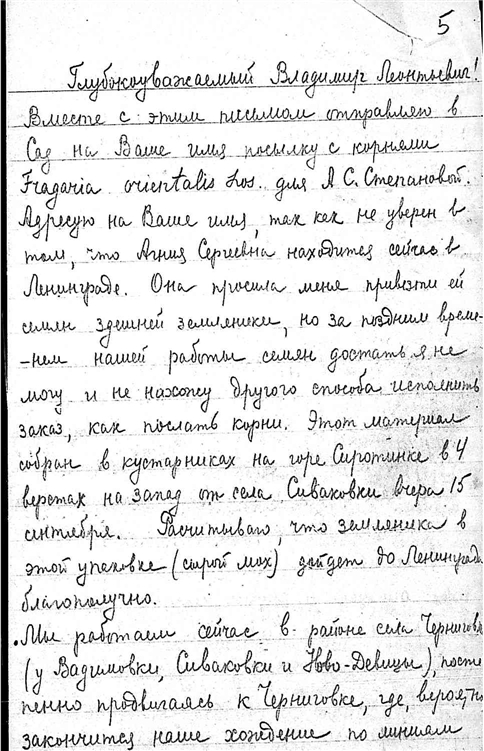 5
Глубокоуважаемый Владимир Леонтьевич!
Вместе с этим письмом отправляю в
Сад на Ваше имя посылку с корнями
Fragaria orientalis Los. для А С. Степановой.
Адресую на Ваше имя, так как не уверен в
том, что Агния Сергиевна находится сейчас в
Ленинграде. Она просила меня привезти ей
семян здешней земляники, но за поздним време-
-нем нашей работы семян достать я не
могу и не нахожу другого способа исполнить
заказ, как послать корни. Этот материал
собран в кустарниках на горе Сиротинке в 4
верстах на запад от села Сиваковки вчера 15
сентября. Расчитываю, что земляника в
этой упаковке (сырой мох) дойдет до Ленинграда
благополучно.
Мы работаем сейчас в районе села Черниговк
(у Вадимовки, Сиваковки и Ново-Девицы), посте
пенно продвигаясь к Черниговке, где, вероятно
закончится наше хождение по линиям